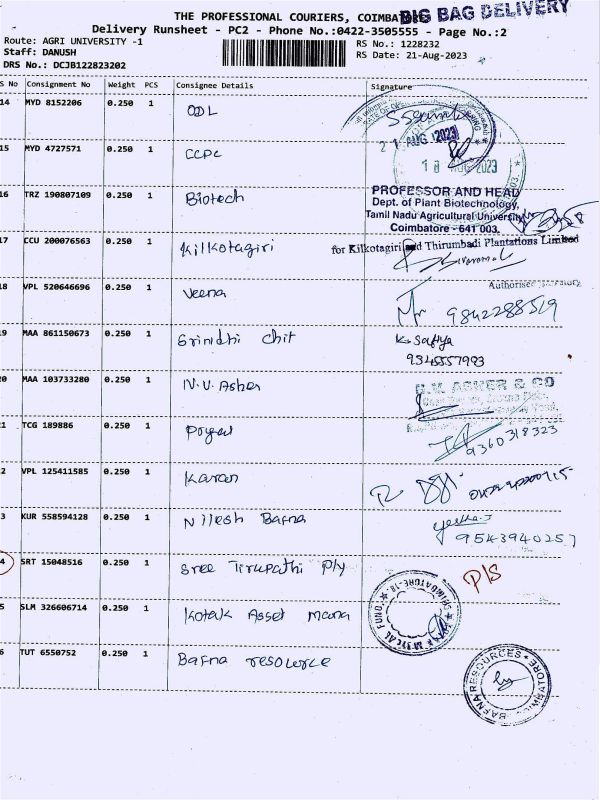 THE PROFESSIONAL COURIERS, COIMBA
BIG BAG DELIVERY
Delivery Runsheet - PC2 - Phone No.:0422-3505555 - Page No.:2
Route: AGRI UNIVERSITY -1
RS No.: 1228232
Staff: DANUSH
RS Date: 21-Aug-2023
DRS No.: DCJB122823202
S No Consignment No Weight PCS Consignee Details Signature
14 MYD 8152206 0.250 1 ODL
21 AUG 2023
15 MYD 4727571 0.250 1 CCPC
18 AUG 2023
16 TRZ 190807109 0.250 1 Biotech
PROFESSOR AND HEAD
Dept. of Plant Biotechnology,
Tamil Nadu Agricultural University
Coimbatore - 641 003.
17 CCU 200076563 0.250 1 Kilkotagiri
for Kilkotagiri and Thirumbadi Plantations Limited
Authorised Signatory
18 VPL 520646696 0.250 1 Veena
9842288519
19 MAA 861150673 0.250 1 Srinidhi Chit
K. Safiya
9345557993
20 MAA 103733280 0.250 1 N.U. Asher
U.M. ASHER & CO
1 TCG 189886 0.250 1
9360318323
2 VPL 125411585 0.250 1 Karan
3 KUR 558594128 0.250 1 Nilesh Bafna
9543940257
4 SRT 15048516 0.250 1 Sree Tirupathi Ply
P/S
5 SLM 326606714 0.250 1 Kotak Asset Mana
MUTUAL FUND
COIMBATORE-18
6 TUT 6550752 0.250 1 Bafna resource
BAFNA RESOURCES
COIMBATORE